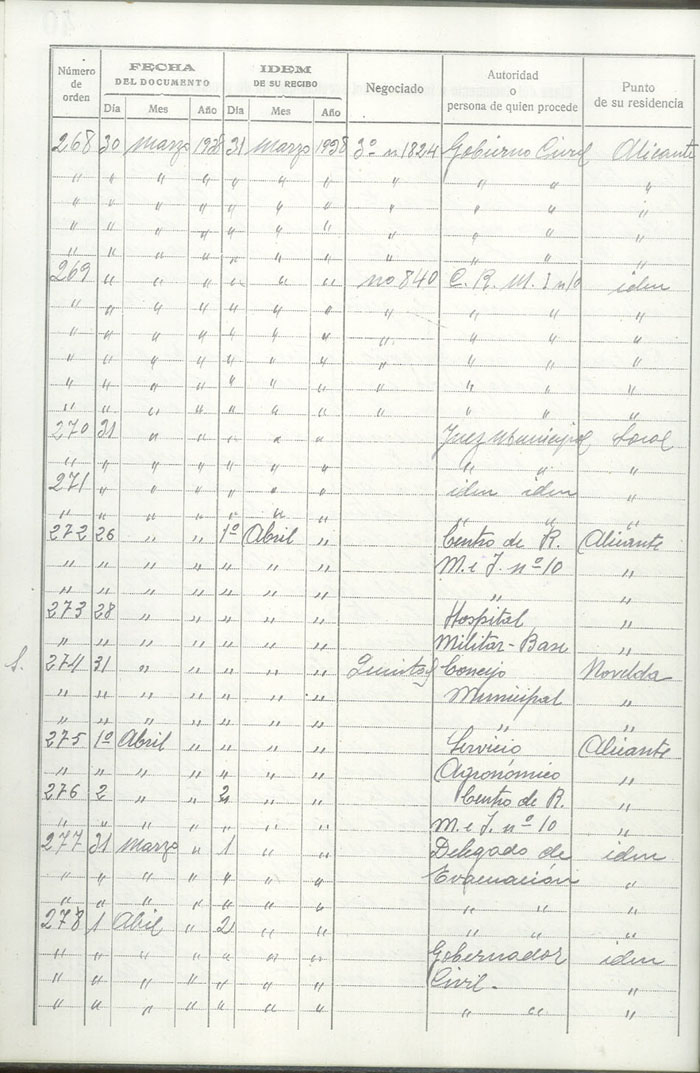 Número de orden | FECHA DEL DOCUMENTO | IDEM DE SU RECIBO | Negociado | Autoridad o persona de quien procede | Punto de su residencia
Día | Mes | Año | Día | Mes | Año
268 30 Marzo 1938 31 Marzo 1938 3º n 1824 Gobierno Civil Alicante
" " " " " " " " " " "
" " " " " " " " " " "
" " " " " " " " " " "
" " " " " " " " " " "
269 " " " " " " no 840 C. R. M. I n10 idem
" " " " " " " " " " "
" " " " " " " " " " "
" " " " " " " " " " "
" " " " " " " " " " "
" " " " " " " " " " "
270 31 " " " " " Juez Municipal Local
" " " " " " " " " "
271 " " " " " " idem idem "
" " " " " " " " " "
272 26 " " 1º Abril " Centro de R. Alicante
" " " " " " " M. e I. nº 10 "
" " " " " " " " "
273 28 " " " " " Hospital "
" " " " " " " Militar-Base "
S. 274 31 " " " " " Quintas Concejo Novelda
" " " " " " " Municipal "
" " " " " " " " "
275 1º Abril " " " " Servicio Alicante
" " " " " " " Agronómico "
276 2 " " 2 " " Centro de R. "
" " " " " " " M. e I. nº 10 "
277 31 Marzo " 1 " " Delegado de idem
" " " " " " " Evacuación "
" " " " " " " " " "
278 1 Abril " 2 " " " " "
" " " " " " " Gobernador idem
" " " " " " " Civil. "
" " " " " " " " " "